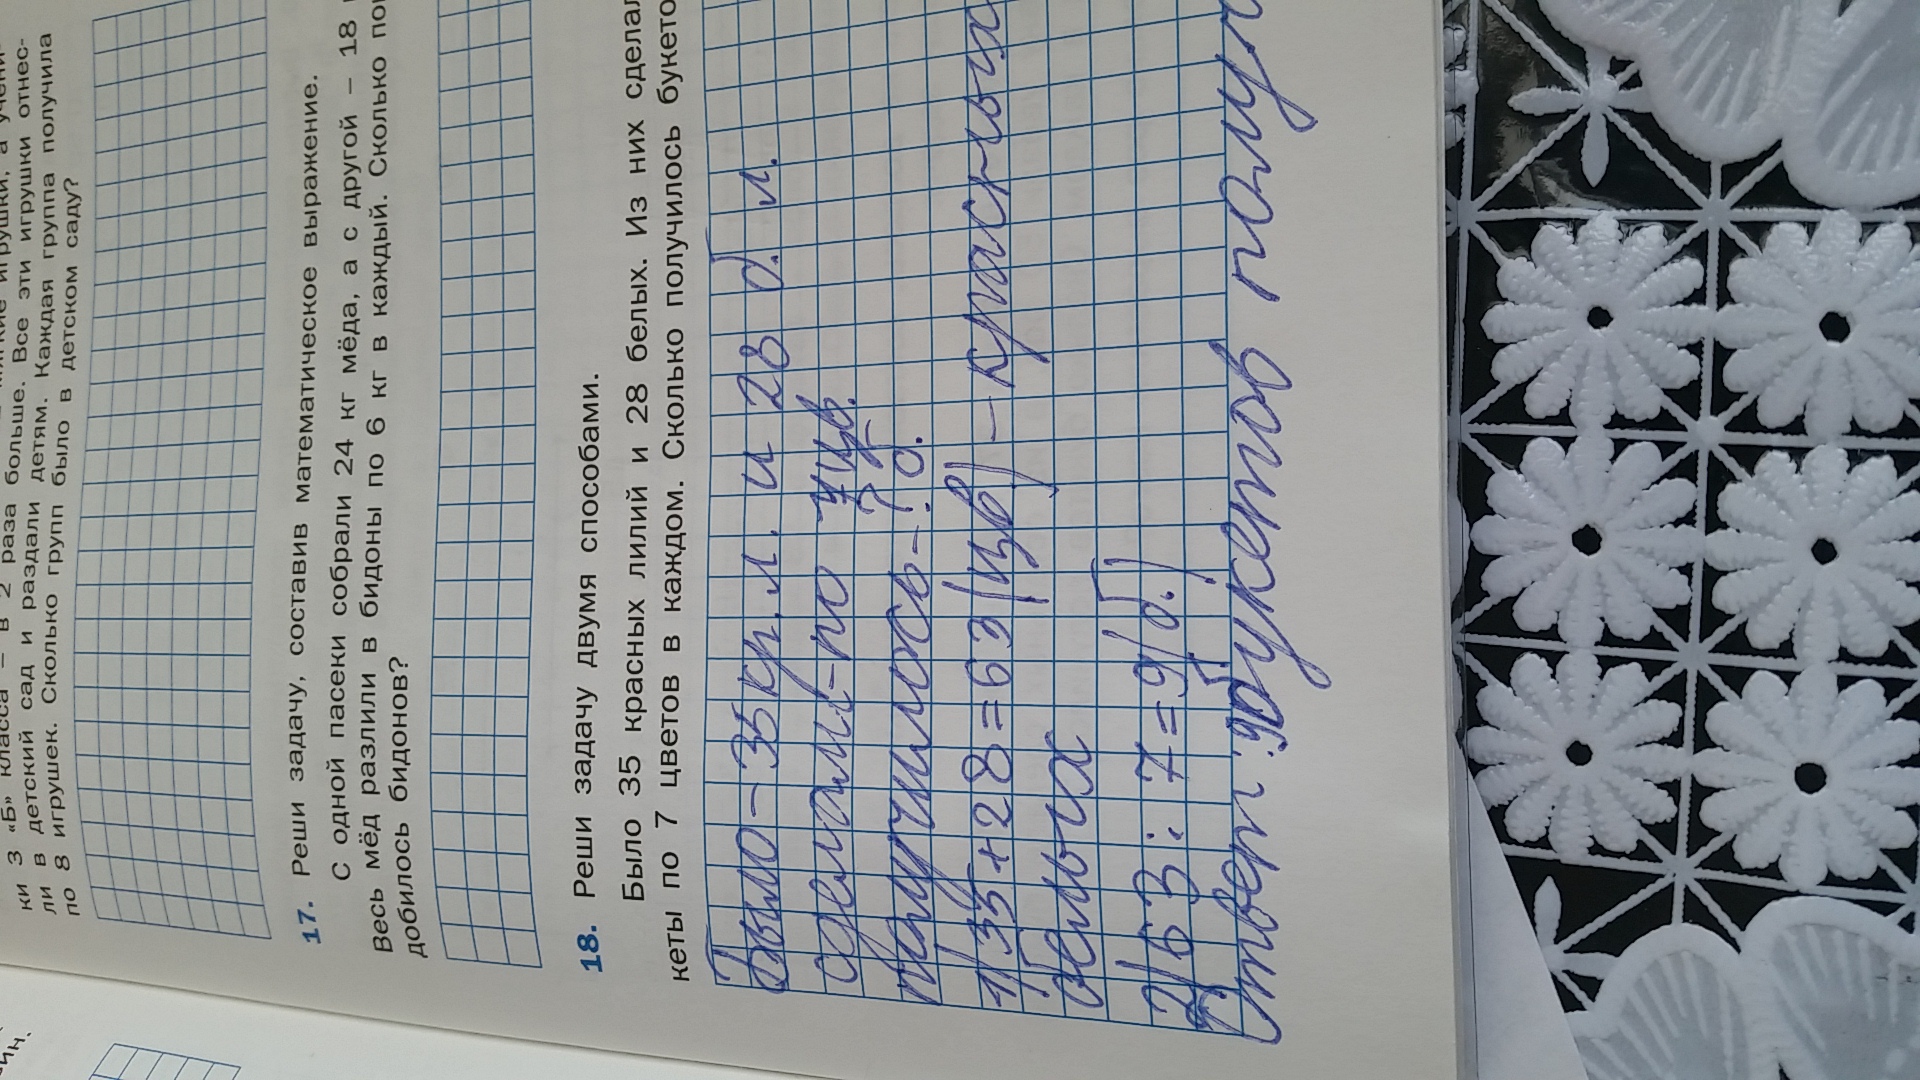 ки 3 «Б» класса – в 2 раза больше. Все эти игрушки отнес-
ли в детский сад и раздали детям. Каждая группа получила
по 8 игрушек. Сколько групп было в детском саду?
17. Реши задачу, составив математическое выражение.
С одной пасеки собрали 24 кг мёда, а с другой – 18
Весь мёд разлили в бидоны по 6 кг в каждый. Сколько
добилось бидонов?
18. Реши задачу двумя способами.
Было 35 красных лилий и 28 белых. Из них сделал
кеты по 7 цветов в каждом. Сколько получилось букето
Было – 35 кр. л. и 28 б. л.
сделали – по 7 цв.
получилось – ? б.
1) 35 + 28 = 63 (цв) – красных
белых
2) 63 : 7 = 9 (б.)
Ответ: 9 букетов получ